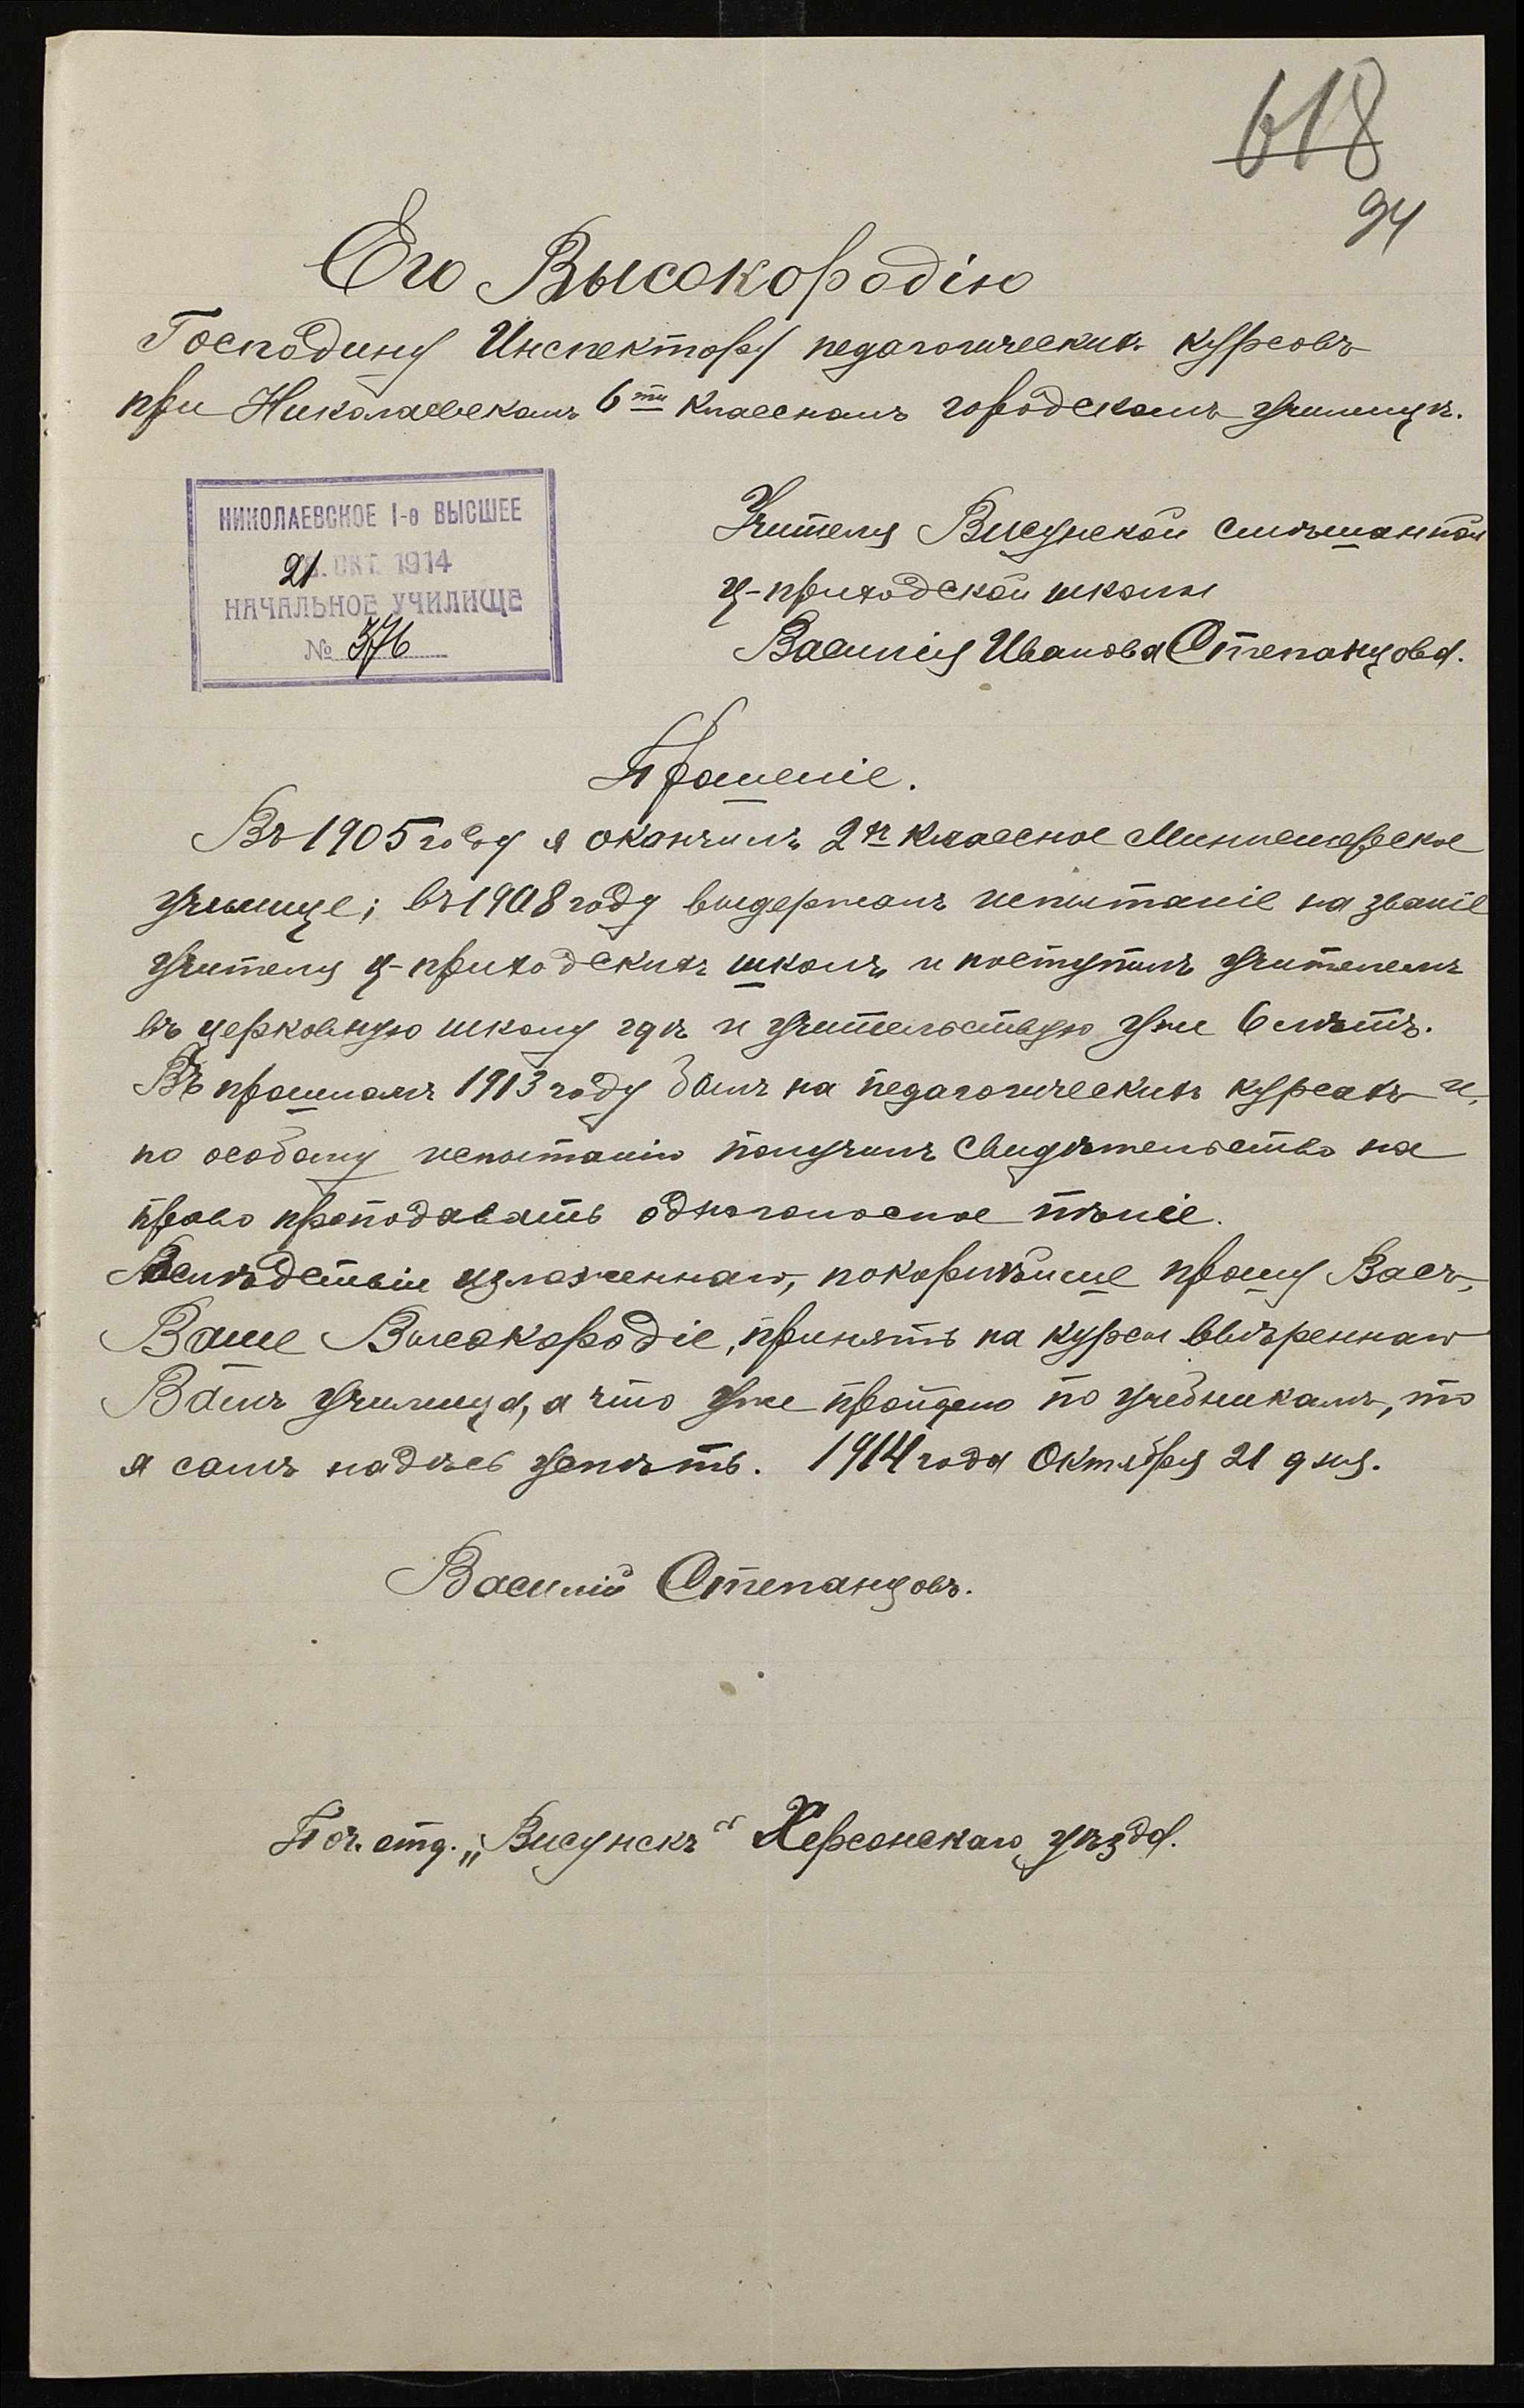 618
94
Его Высокородію
Господину Инспектору педагогическихъ курсовъ
при Николаевскомъ 6ти классномъ городскомъ училищѣ.
НИКОЛАЕВСКОЕ I-е ВЫСШЕЕ
21 ОКТ. 1914
НАЧАЛЬНОЕ УЧИЛИЩЕ
№ 376
Учителя Висунской смѣшанной
ц-приходской школы
Василія Иванова Степанцова.
Прошеніе.
Въ 1905 году я окончилъ 2хъ классное Министерское
училище; въ 1908 году выдержалъ испытаніе на званіе
учителя ц-приходскихъ школъ и поступилъ учителемъ
въ церковную школу гдѣ и учительствую уже 6 лѣтъ.
Въ прошломъ 1913 году былъ на педагогическихъ курсахъ и,
по особому испытанію получилъ свидѣтельство на
право преподавать одноголосное пѣніе.
Вслѣдствіи изложеннаго, покорнѣйше прошу Васъ,
Ваше Высокородіе, принять на курсы ввѣреннаго
Вамъ училища, а что уже пройдено по учебникамъ, то
я самъ надѣюсь успѣть. 1914 года Октября 21 дня.
Василій Степанцовъ.
Поч. отд. „Висунскъ" Херсонскаго уѣзда.